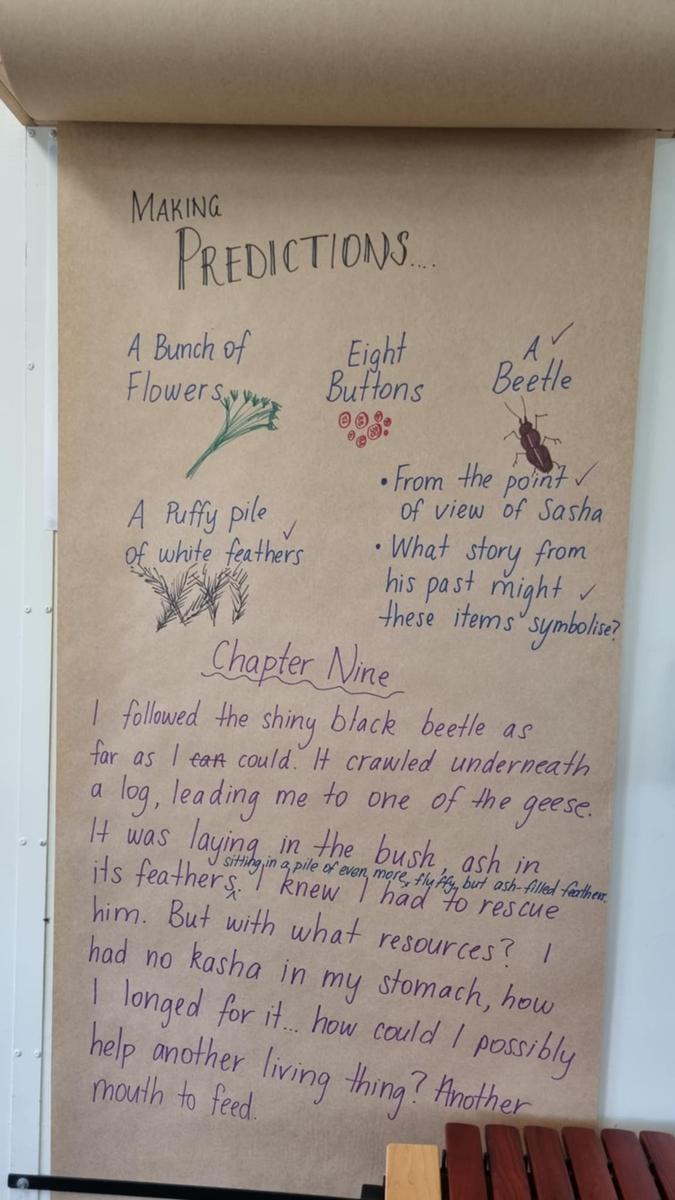 MAKING
PREDICTIONS....
A Bunch of
Flowers
Eight
Buttons
A ✓
Beetle
A Puffy pile
of white feathers ✓
• From the point ✓
of view of Sasha
• What story from
his past might ✓
these items symbolise?
Chapter Nine
I followed the shiny black beetle as
far as I can could. It crawled underneath
a log, leading me to one of the geese.
It was laying in the bush, ash in
sitting in a pile of even more, fluffy, but ash-filled feathers.
its feathers. I knew I had to rescue
him. But with what resources? I
had no kasha in my stomach, how
I longed for it... how could I possibly
help another living thing? Another
mouth to feed.